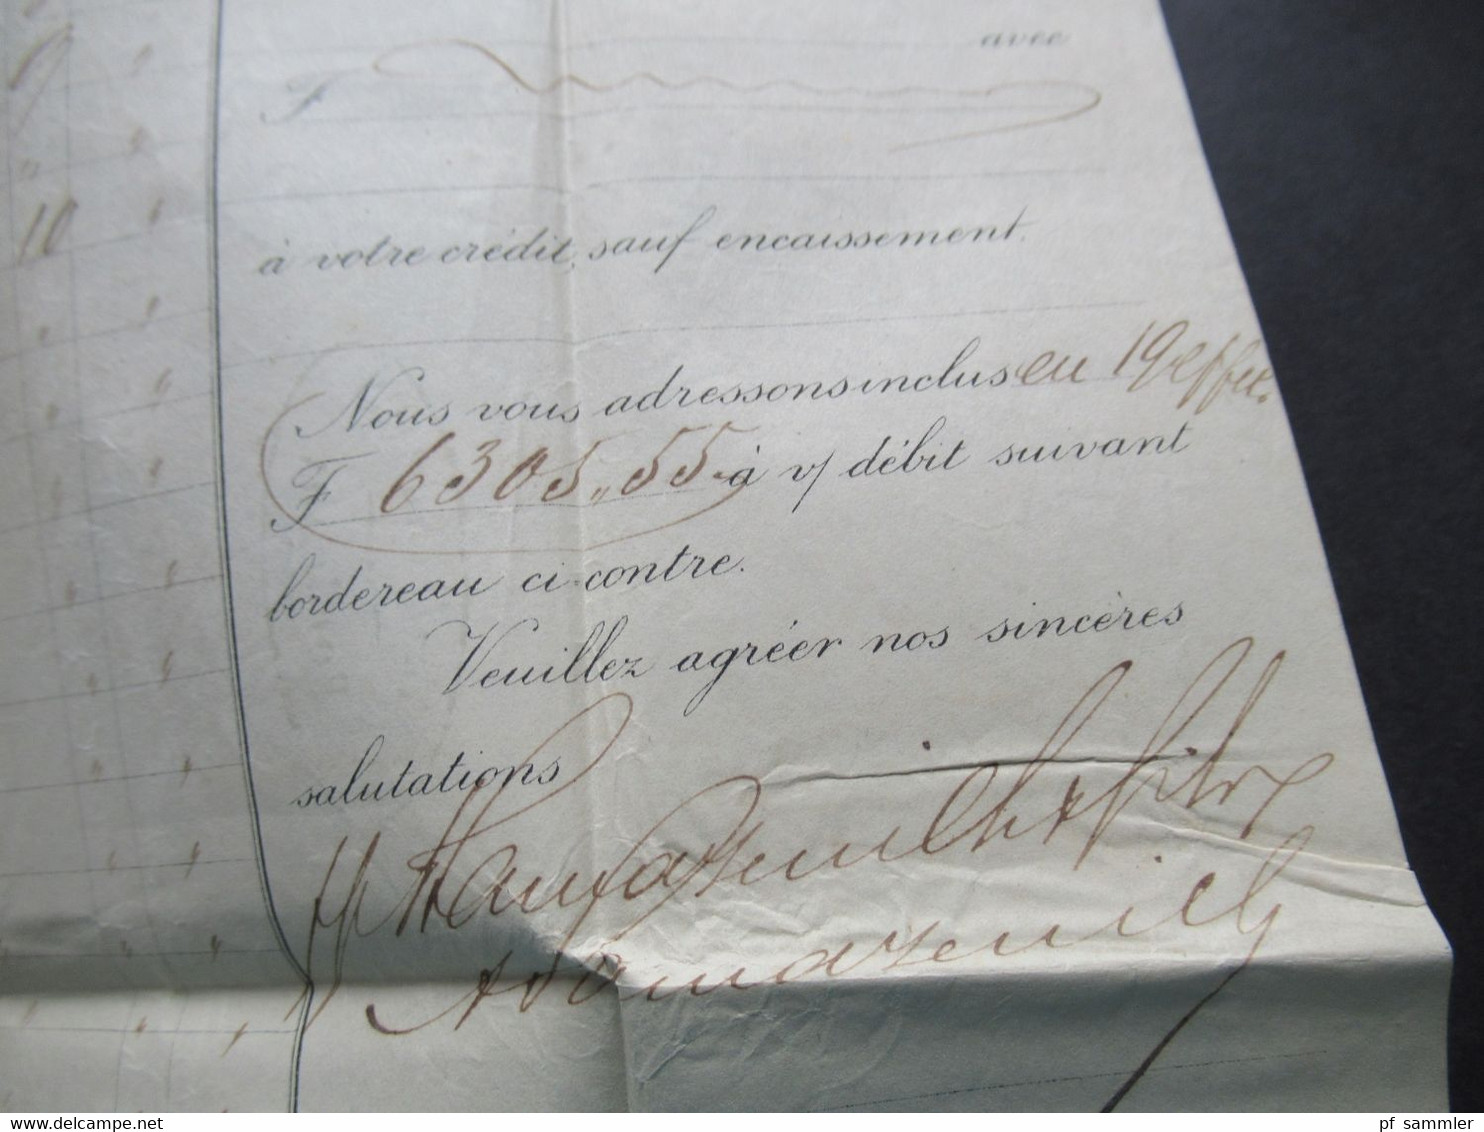 avec
F
10 "
à votre crédit, sauf encaissement.
Nous vous adressons inclus en 19 effets.
F 6305,,55 à v/ débit suivant
bordereau ci-contre.
Veuillez agréer nos sincères
salutations
delcampe.net
pf_sammler